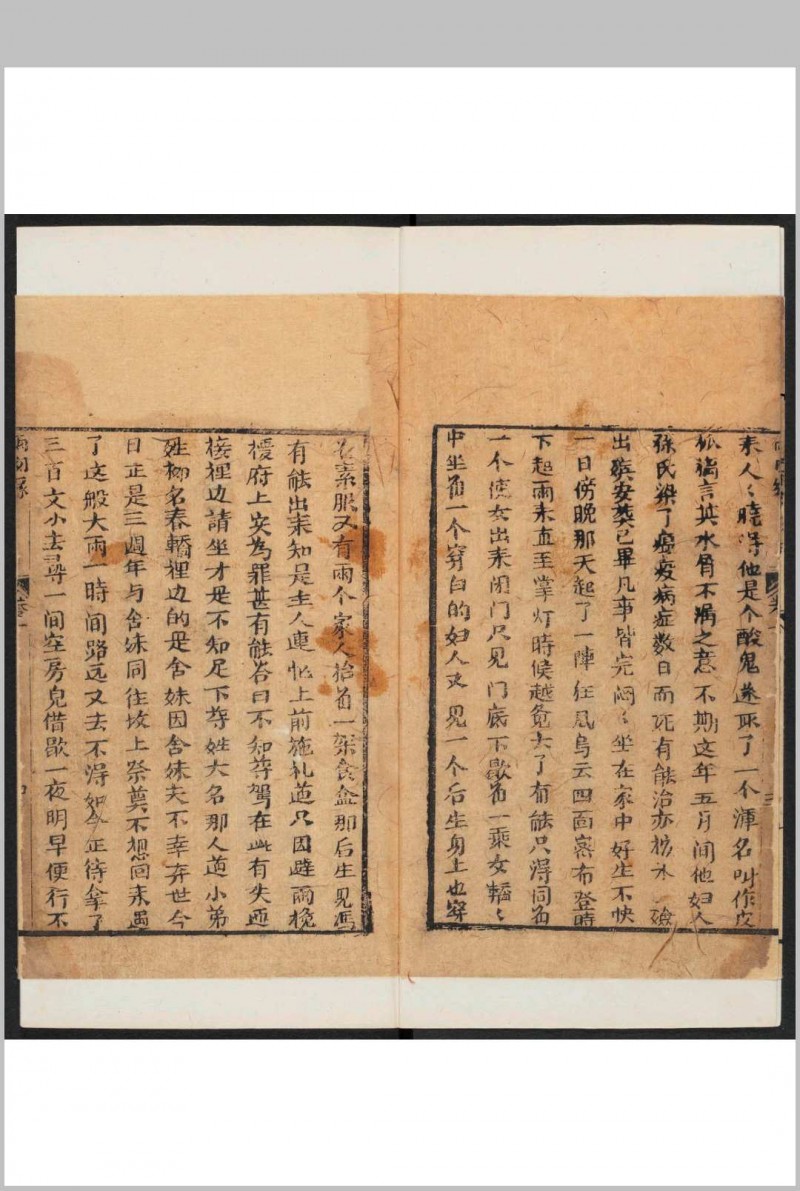 來人〻曉得他是个酸鬼遂取了一个渾名叫作皮
狐狸言其水屑不漏之意不期这年五月间他妇人
孫氏染了瘟疫病症数日而死有能治亦棺木殮
出殯安葬已畢凡事皆完闷〻坐在家中好生不快
一日傍晚那天起了一陣狂風乌云四面蜜布登時
下起雨来直至掌灯時候越竟大了有能只淂同着
一个使女出来闭门只见门底下歇着一乘女轎〻
中坐着一个穿白的妇人又见一个后生身上也穿
着素服又有兩个家人抬着一架食盒那后生见馮
有能出来知是主人連忙上前施礼道只因避雨檅
擾府上实為罪甚有能答曰不知尊駕在此有失迎
接裡边請坐才是不知足下尊姓大名那人道小弟
姓柳名春轎裡边的是舍妹因舍妹夫不幸弃世今
日正是三週年与舍妹同往坟上祭奠不想回来遇
了这般大雨一時间路远又去不淂如今正待拿了
三百文小去尋一间空房皃借歇一夜明早便行不